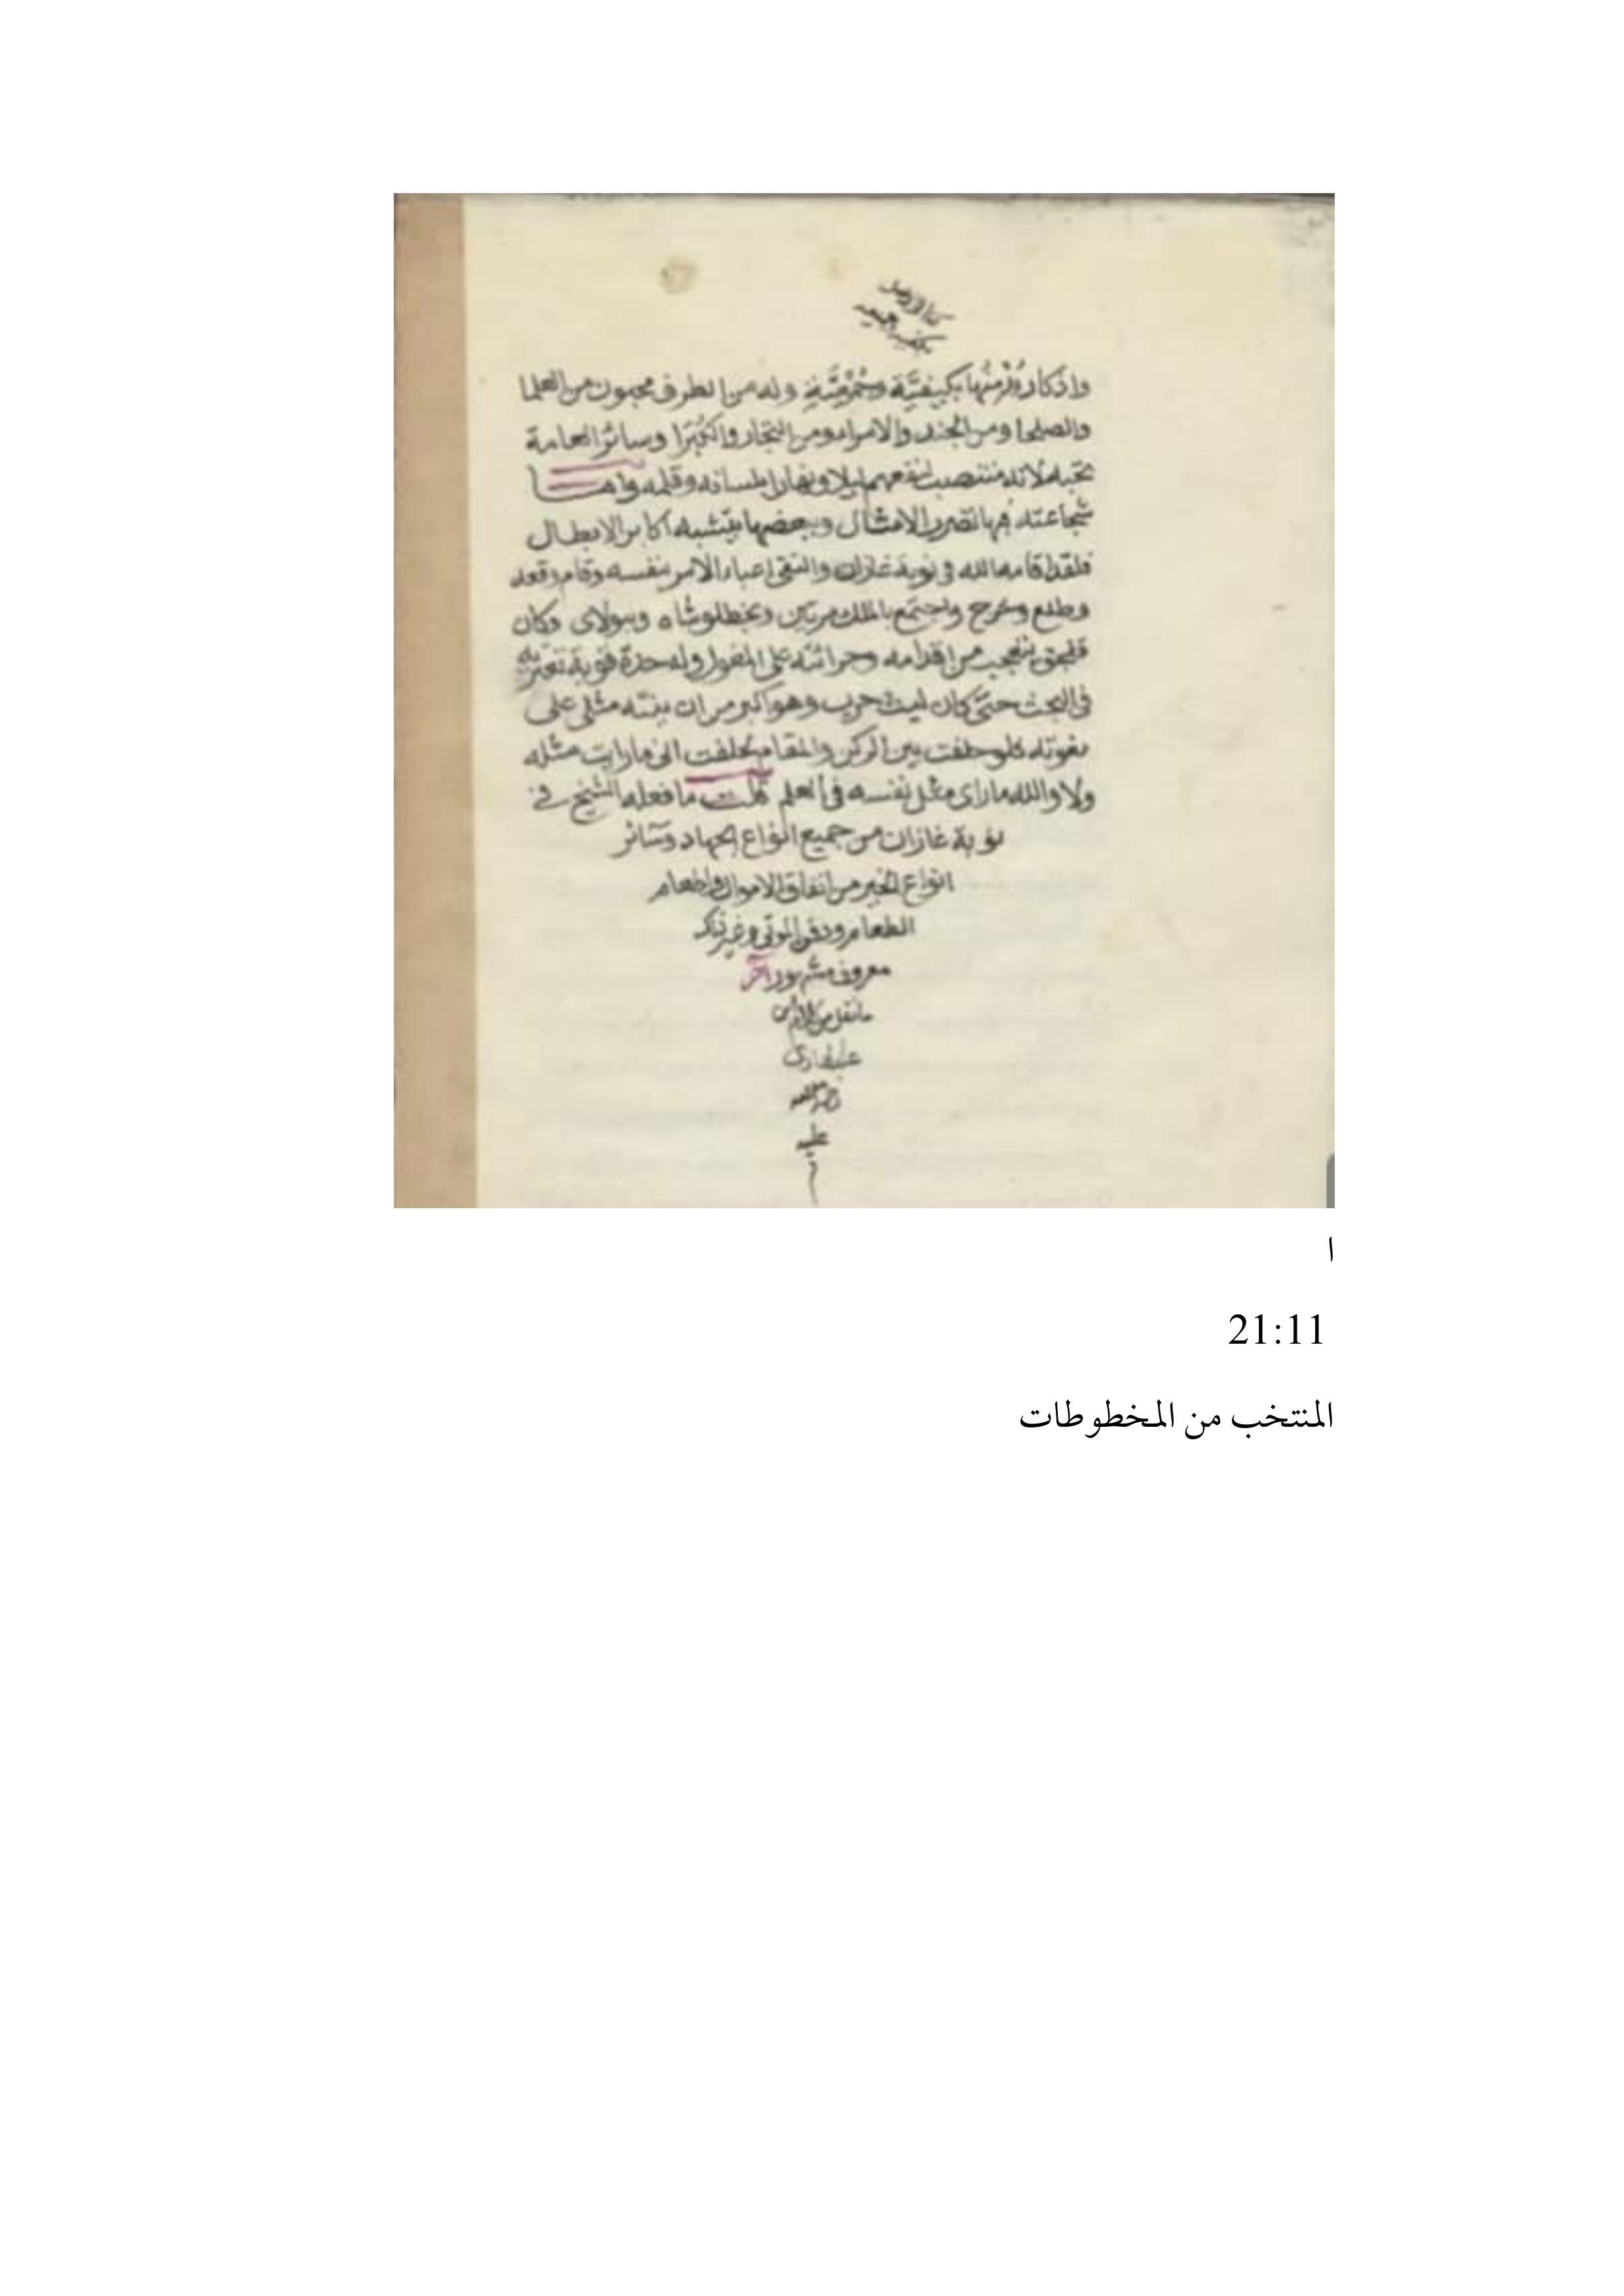 كذا في الاصل
واذكار يدمنها بكيفية وجمعية وله من الطرف محبون من العلما
والصلحا ومن الجند والامراء ومن التجار والكبرا وسائر العامة
تحبه لانه منتصب لنفعهم ليلا ونهارا بلسانه وقلمه واما
شجاعته فبها تضرب الامثال وببعضها يتشبه اكابر الابطال
فلقد اقامه الله في نوبة غازان والتقى اعباء الامر بنفسه وقام وقعد
وطلع وخرج واجتمع بالملك مرتين وبخطلوشاه وببولاي وكان
قبجق يتعجب من اقدامه وجرائته على المغول وله حدة قوية تعتريه
في البحث حتى كان ليث حرب وهو اكبر من ان ينبه مثلي على
نعوته فلو حلفت بين الركن والمقام لحلفت اني ما رايت مثله
ولا والله ما راى مثل نفسه في العلم قلت ما فعله الشيخ في
نوبة غازان من جميع انواع الجهاد وسائر
انواع الخير من انفاق الاموال واطعام
الطعام ودفن الموتى وغير ذلك
معروف مشهور آخر
ما نقل من كلام ابن
عبد الهادي
رحمة الله
عليه
ا
21:11
المنتخب من المخطوطات